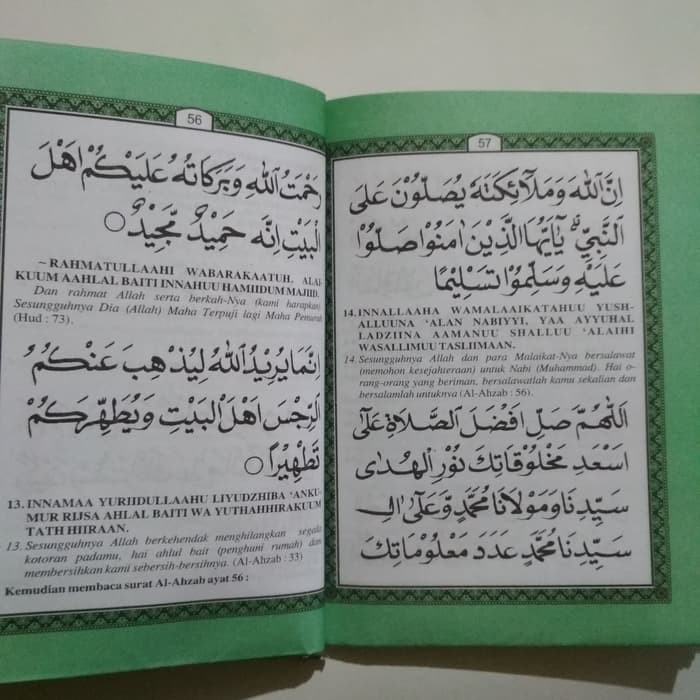 56
رَحْمَتُ اللهِ وَبَرَكَاتُهُ عَلَيْكُمْ اَهْلَ
الْبَيْتِ اِنَّهُ حَمِيْدٌ مَّجِيْدٌ ○
~ RAHMATULLAAHI WABARAKAATUH. ALAI-
KUUM AAHLAL BAITI INNAHUU HAMIIDUM MAJIID.
Dan rahmat Allah serta berkah-Nya (kami harapkan)
Sesungguhnya Dia (Allah) Maha Terpuji lagi Maha Pemurah
(Hud : 73).
اِنَّمَا يُرِيْدُ اللهُ لِيُذْهِبَ عَنْكُمُ
الرِّجْسَ اَهْلَ الْبَيْتِ وَيُطَهِّرَكُمْ
تَطْهِيْرًا ○
13. INNAMAA YURIIDULLAAHU LIYUDZHIBA 'ANKU-
MUR RIJSA AHLAL BAITI WA YUTHAHHIRAKUUM
TATH HIIRAAN.
13. Sesungguhnya Allah berkehendak menghilangkan segala
kotoran padamu, hai ahlul bait (penghuni rumah) dan
membersihkan kami sebersih-bersihnya. (Al-Ahzab : 33)
Kemudian membaca surat Al-Ahzab ayat 56 :
57
اِنَّ اللهَ وَمَلَآئِكَتَهُ يُصَلُّوْنَ عَلَى
النَّبِيِّ يٰٓاَيُّهَا الَّذِيْنَ اٰمَنُوْا صَلُّوْا
عَلَيْهِ وَسَلِّمُوْا تَسْلِيْمًا
14. INNALLAAHA WAMALAAIKATAHUU YUSH-
ALLUUNA 'ALAN NABIYYI, YAA AYYUHAL
LADZIINA AAMANUU SHALLUU 'ALAIHI
WASALLIMUU TASLIIMAAN.
14. Sesungguhnya Allah dan para Malaikat-Nya bersalawat
(memohon kesejahteraan) untuk Nabi (Muhammad). Hai o-
rang-orang yang beriman, bersalawatlah kamu sekalian dan
bersalamlah untuknya (Al-Ahzab : 56).
اَللّٰهُمَّ صَلِّ اَفْضَلَ الصَّلَاةِ عَلَى
اَسْعَدِ مَخْلُوْقَاتِكَ نُوْرِ الْهُدٰى
سَيِّدِنَا وَمَوْلَانَا مُحَمَّدٍ وَّعَلٰى اٰلِ
سَيِّدِنَا مُحَمَّدٍ عَدَدَ مَعْلُوْمَاتِكَ